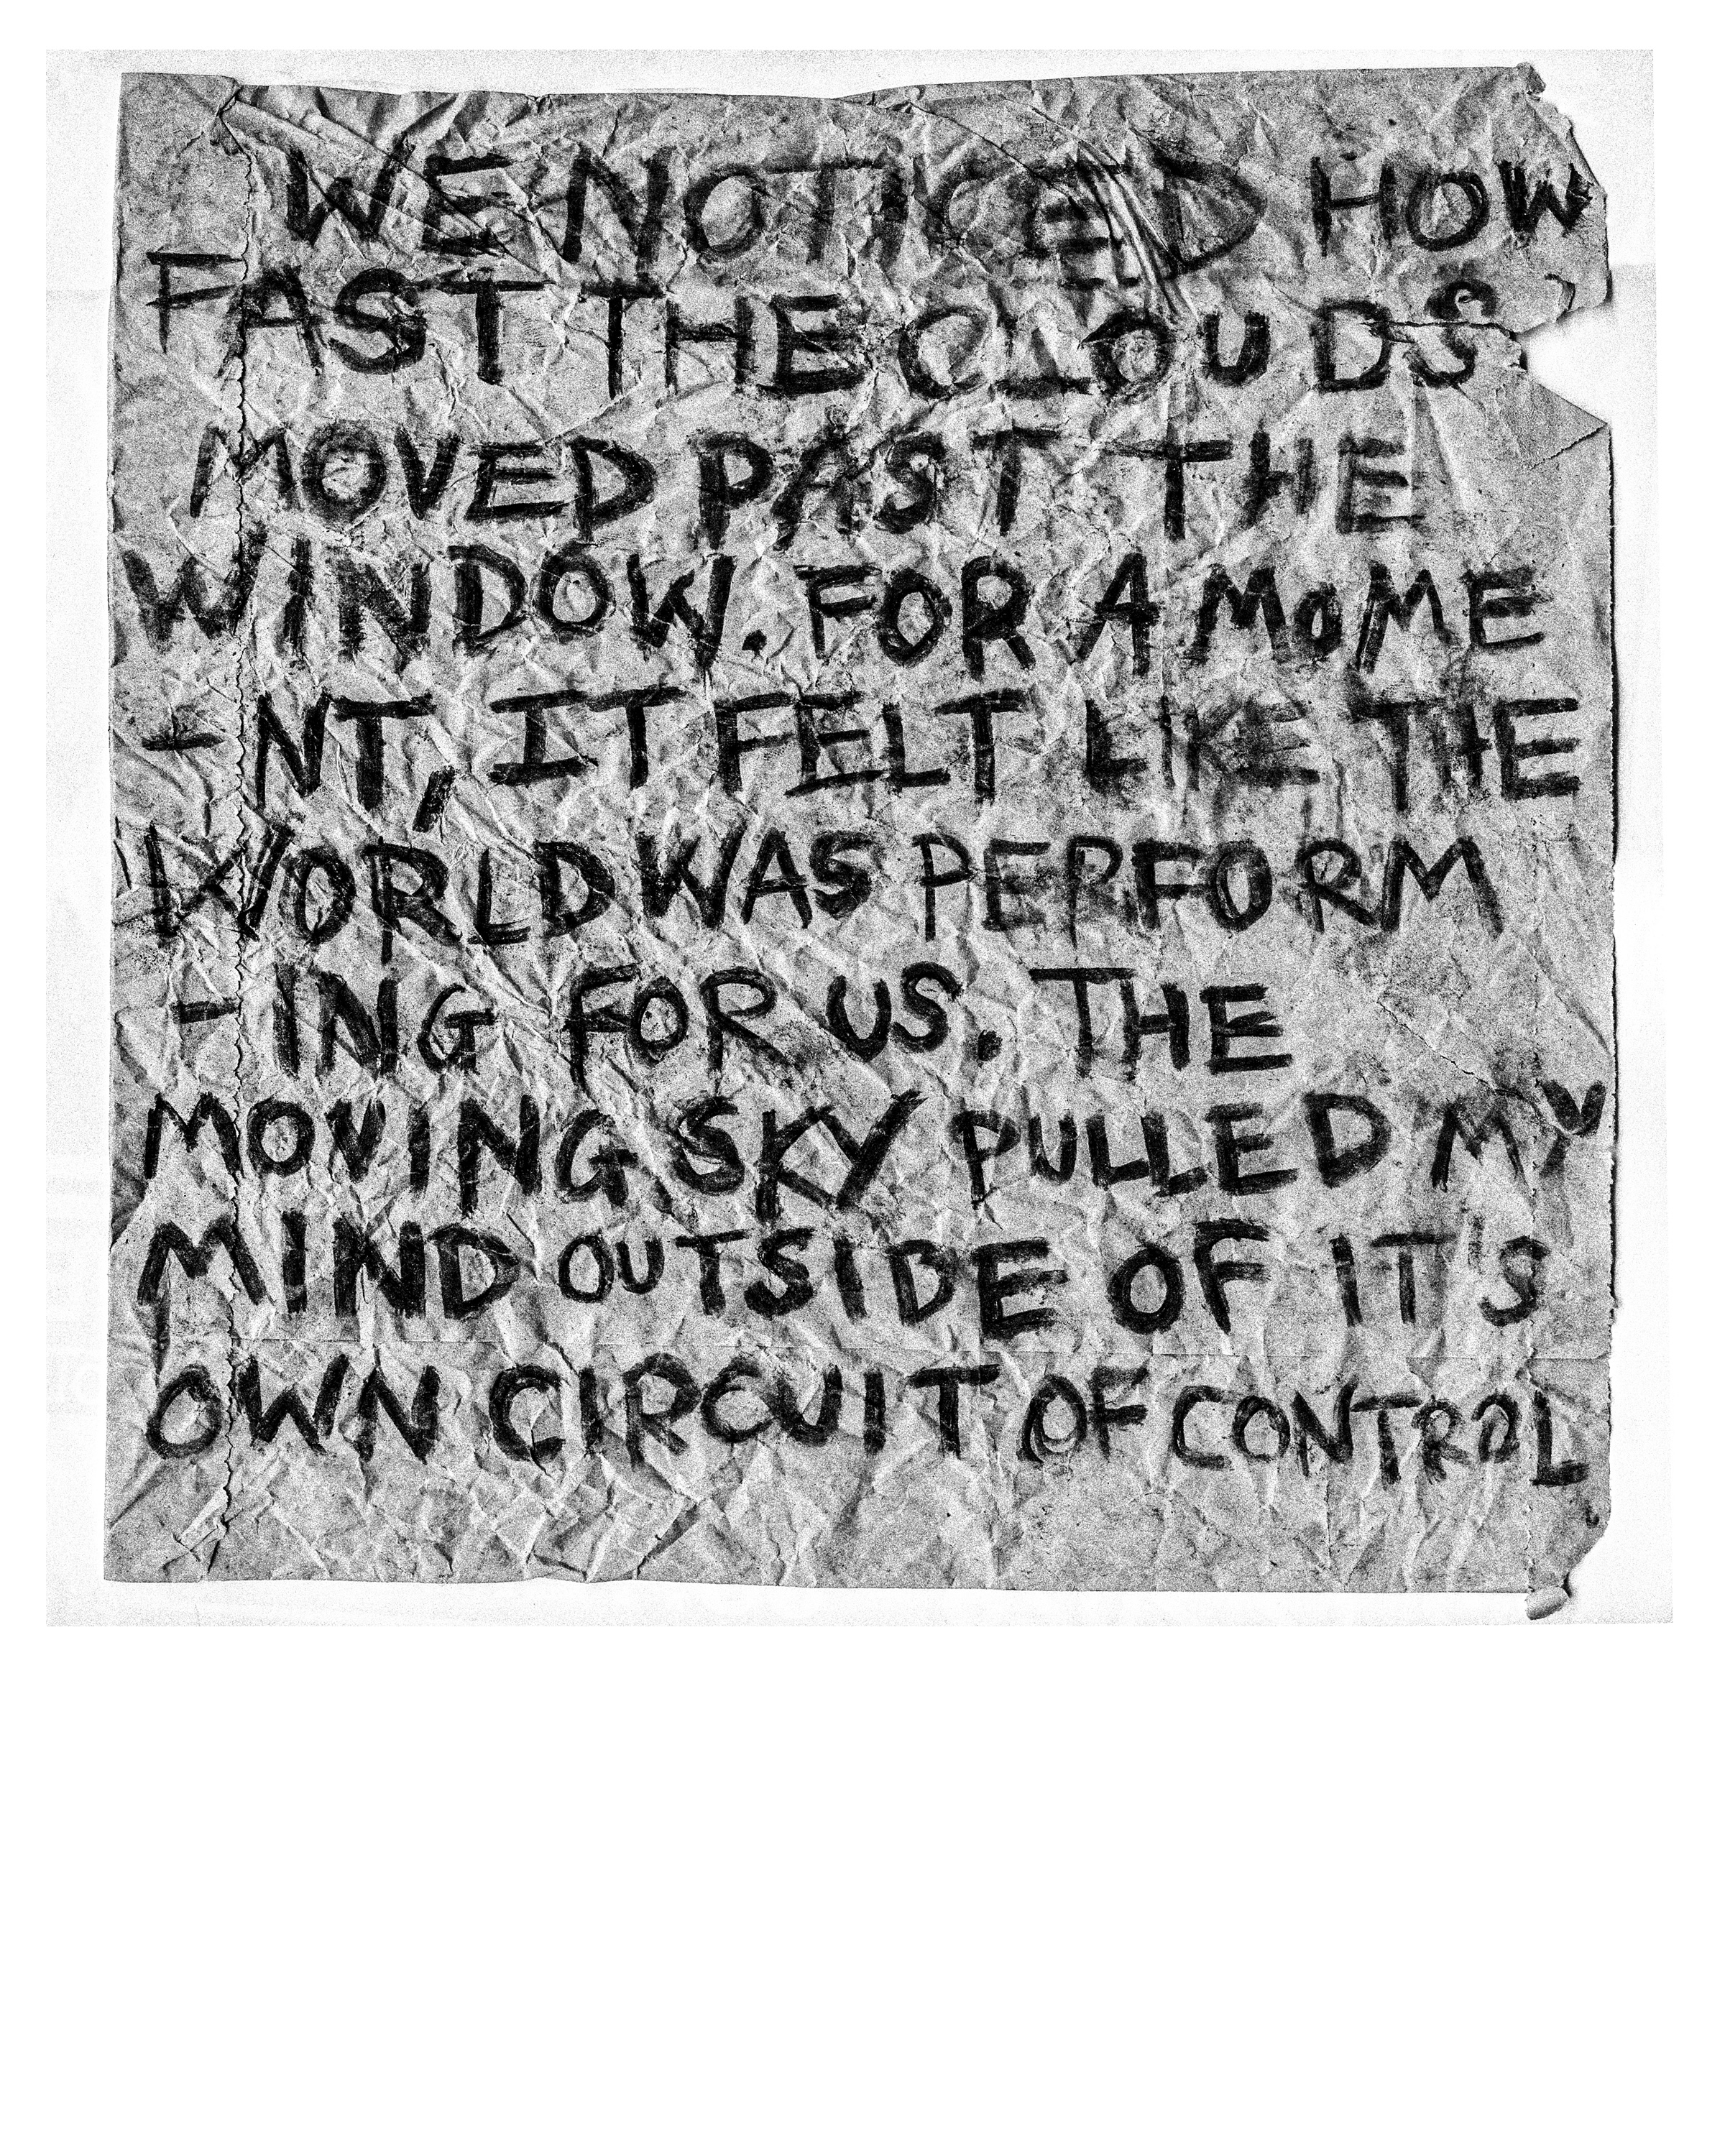 WE NOTICED HOW
FAST THE CLOUDS
MOVED PAST THE
WINDOW. FOR A MOME
-NT, IT FELT LIKE THE
WORLD WAS PERFORM
-ING FOR US. THE
MOVING SKY PULLED MY
MIND OUTSIDE OF IT'S
OWN CIRCUIT OF CONTROL